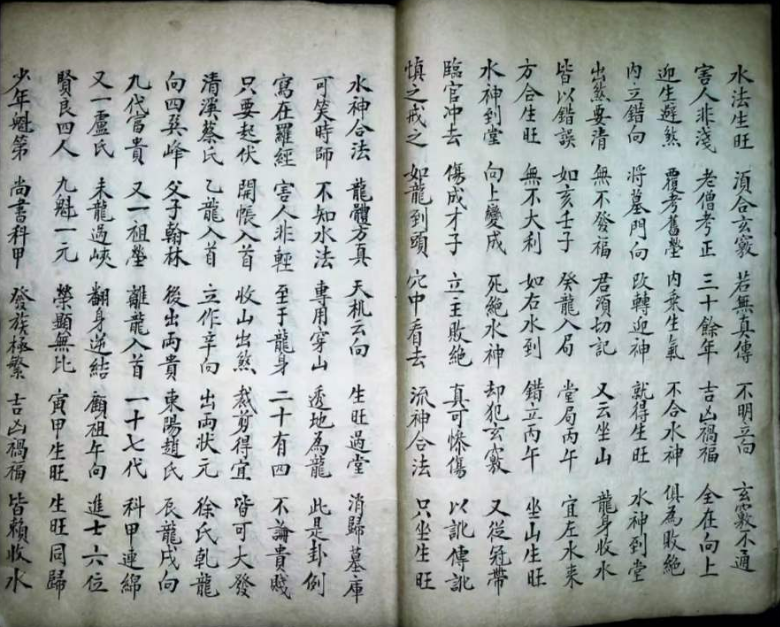 水法生旺 須合玄竅 若無真傳 不明立向 玄竅不通
害人非淺 老僧考正 三十餘年 吉凶禍福 全在向上
迎生避煞 覆考舊塋 內乘生氣 不合水神 俱為敗絕
內立錯向 將墓門向 改轉迎神 就得生旺 水神到堂
出煞要清 無不發福 君須切記 又云坐山 龍身收水
皆以錯誤 如亥壬子 癸龍入局 堂局丙午 宜左水来
方合生旺 無不大利 如右水到 錯立丙午 坐山生旺
水神到堂 向上變成 死絕水神 却犯玄竅 又從冠帶
臨官冲去 傷成才子 立主敗絕 真可慘傷 以訛傳訛
慎之戒之 如龍到頭 穴中看去 流神合法 只坐生旺
水神合法 龍體方真 天机云向 生旺過堂 消歸墓庫
可笑時師 不知水法 專用穿山 透地為龍 此是卦例
寫在羅經 害人非輕 至于龍身 二十有四 不論貴賤
只要起伏 開帳入首 收山出煞 裁剪得宜 皆可大發
清溪蔡氏 乙龍入首 立作辛向 出両狀元 徐氏乹龍
向四巽峰 父子翰林 後出両貴 東陽趙氏 辰龍戌向
九代富貴 又一祖塋 離龍入首 一十七代 科甲連綿
又一盧氏 未龍過峽 翻身逆結 顧祖午向 進士六位
賢良四人 九魁一元 榮顯無比 寅甲生旺 生旺同歸
少年魁第 尚書科甲 發族極繁 吉凶禍福 皆賴收水